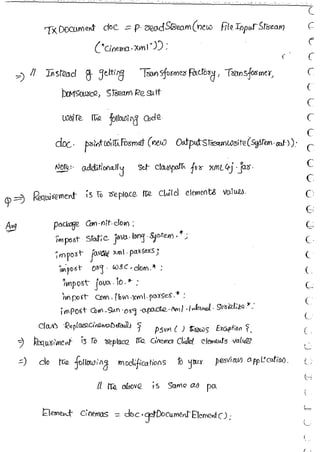 TXDocument doc = p.readStream(new FileInputStream
("cinema.xml"));
=) // Instead of getting TransformerFactory, Transformer,
DOMSource, StreamResult
write the following code
doc.printWithFormat(new OutputStreamWrite(System.out));
Note:- additionally set classpath for xml4j.jar.
φ=) Requirement is to replace the child elements values.
Ans package com.nit.dom;
import static java.lang.System.*;
import javax.xml.parsers;
import org.w3c.dom.*;
import java.io.*;
import com.ibm.xml.parsers.*;
import com.sun.org.apache.xml.internal.serialize.*;
class ReplaceCinemaDetails { psvm( ) throws Exception {
=) Requirement is to replace the Cinema Child elements values
=) do the following modifications to your previous application.
// the above is same as pa
Element cinemas = doc.getDocumentElement();